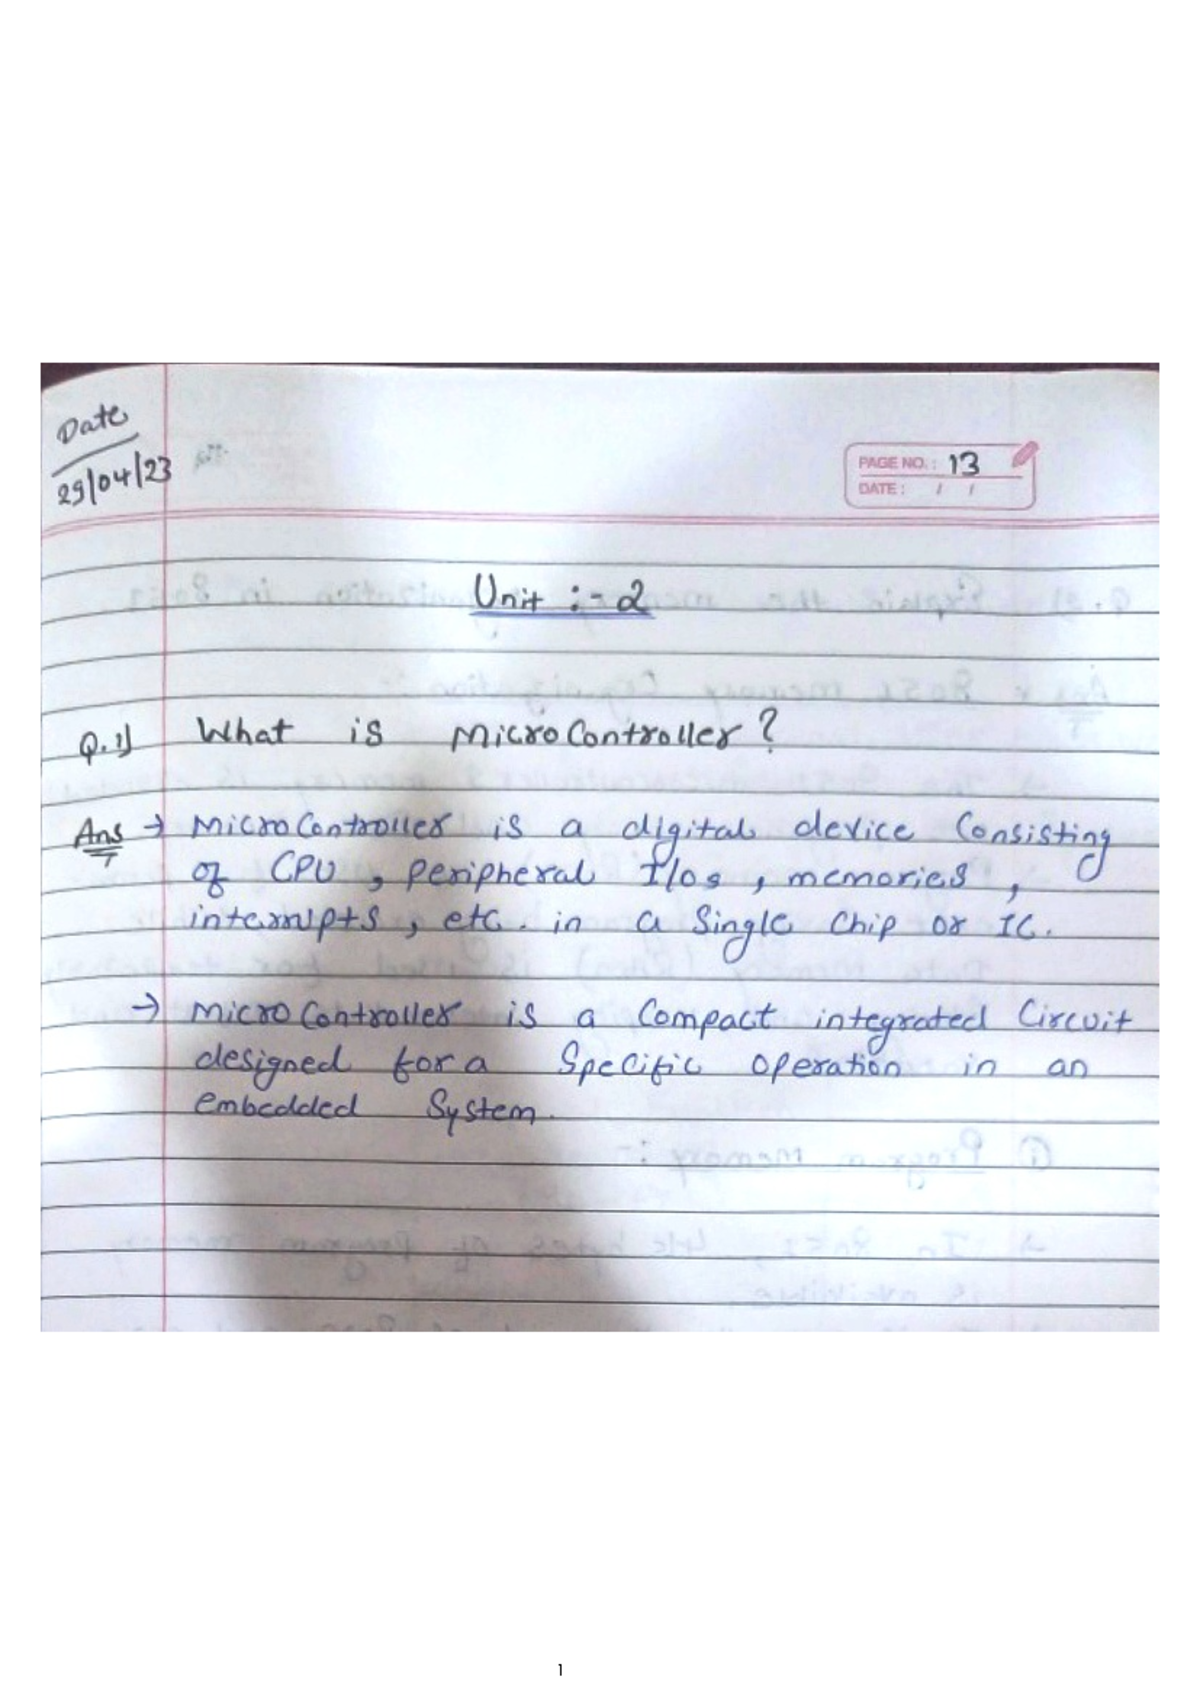 Date
29/04/23
PAGE NO.: 13
DATE: / /
Unit :- 2
Q.1) What is MicroController?
Ans → MicroController is a digital device Consisting
of CPU, peripheral I/os, memories,
interrupts, etc. in a Single Chip or IC.
→ MicroController is a Compact integrated Circuit
designed for a Specific Operation in an
embedded System.
1